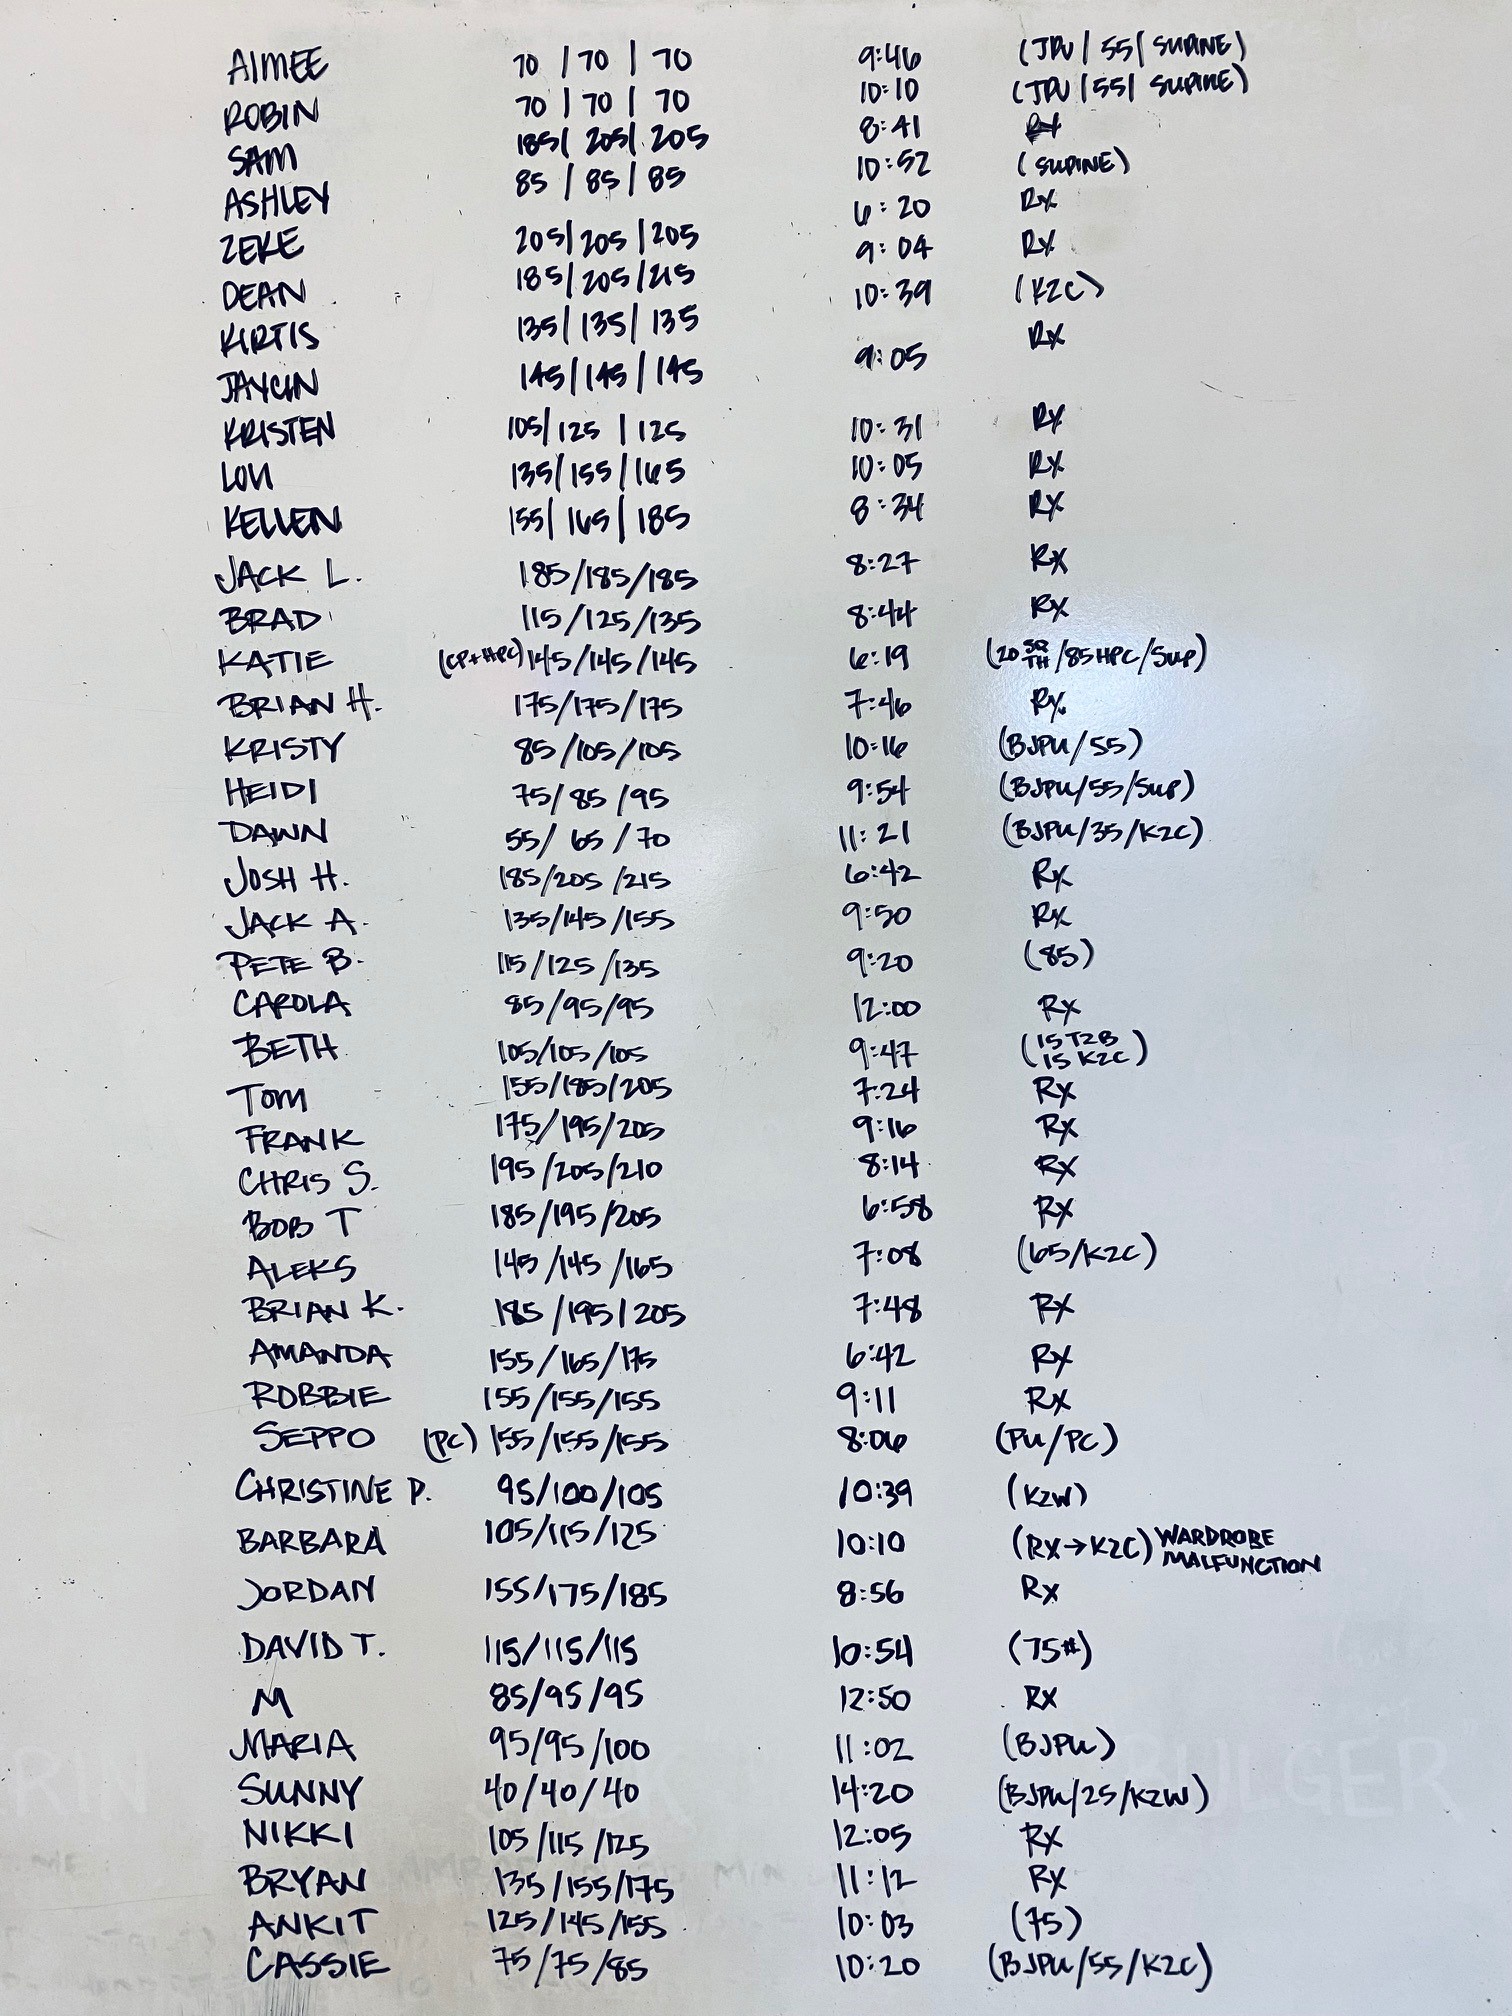 AIMEE 70 / 70 / 70 9:46 (JPU / 55 / SUPINE)
ROBIN 70 / 70 / 70 10:10 (JPU / 55 / SUPINE)
SAM 185 / 205 / 205 8:41 RX
ASHLEY 85 / 85 / 85 10:52 (SUPINE)
ZEKE 205 / 205 / 205 6:20 Rx
DEAN 185 / 205 / 215 9:04 Rx
KIRTIS 135 / 135 / 135 10:39 (K2C)
JAYCIN 145 / 145 / 145 9:05 Rx
KRISTEN 105 / 125 / 125 10:31 Rx
LOU 135 / 155 / 165 10:05 Rx
KELLEN 155 / 165 / 185 8:34 Rx
JACK L. 185/185/185 8:27 Rx
BRAD 115/125/135 8:44 Rx
KATIE (CP+HPC) 145/145/145 6:19 (20 SQ TH /85 HPC/SUP)
BRIAN H. 175/175/175 7:46 Rx
KRISTY 85/105/105 10:16 (BJPU/55)
HEIDI 75/85/95 9:54 (BJPU/55/SUP)
DAWN 55/65/70 11:21 (BJPU/35/K2C)
JOSH H. 185/205/215 6:42 Rx
JACK A. 135/145/155 9:50 Rx
PETE B. 115/125/135 9:20 (85)
CAROLA 85/95/95 12:00 Rx
BETH 105/105/105 9:47 (15 T2B 15 K2C)
TOM 155/185/205 7:24 Rx
FRANK 175/195/205 9:16 Rx
CHRIS S. 195/205/210 8:14 Rx
BOB T 185/195/205 6:58 Rx
ALEKS 145/145/165 7:08 (65/K2C)
BRIAN K. 185/195/205 7:48 Rx
AMANDA 155/165/175 6:42 Rx
ROBBIE 155/155/155 9:11 Rx
SEPPO (PC) 155/155/155 8:06 (PU/PC)
CHRISTINE P. 95/100/105 10:39 (K2W)
BARBARA 105/115/125 10:10 (RX→K2C) WARDROBE MALFUNCTION
JORDAN 155/175/185 8:56 Rx
DAVID T. 115/115/115 10:54 (75#)
M 85/95/95 12:50 RX
MARIA 95/95/100 11:02 (BJPU)
SUNNY 40/40/40 14:20 (BJPU/25/K2W)
NIKKI 105/115/125 12:05 Rx
BRYAN 135/155/175 11:12 Rx
ANKIT 125/145/155 10:03 (75)
CASSIE 75/75/85 10:20 (BJPU/55/K2C)